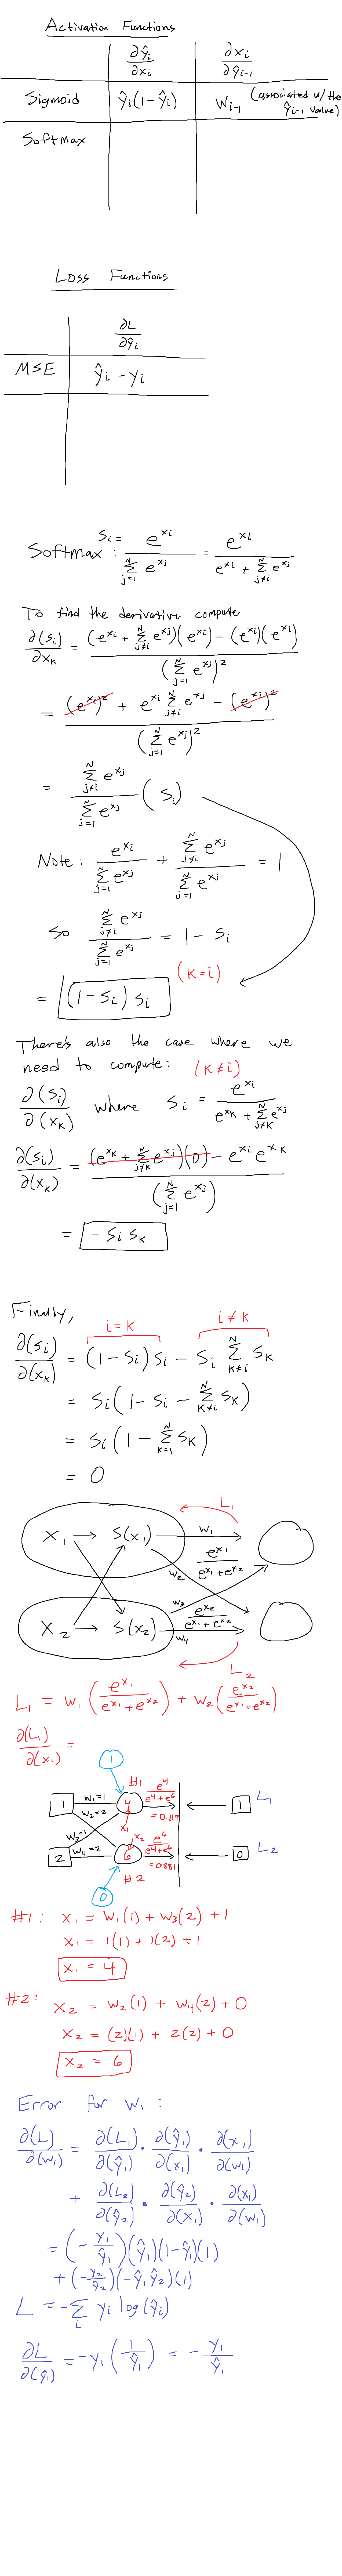 Activation Functions
∂ŷi/∂xi ∂xi/∂ŷi-1
Sigmoid ŷi(1-ŷi) Wi-1 (associated w/ the ŷi-1 value)
Softmax
Loss Functions
∂L/∂ŷi
MSE ŷi - yi
Softmax : Si = e^xi / Σ_{j=1}^{N} e^xj = e^xi / (e^xi + Σ_{j≠i}^{N} e^xj)
To find the derivative compute
∂(Si)/∂xk = ((e^xi + Σ_{j≠i}^{N} e^xj)(e^xi) - (e^xi)(e^xi)) / (Σ_{j=1}^{N} e^xj)²
= ((e^xi)² + e^xi Σ_{j≠i}^{N} e^xj - (e^xi)²) / (Σ_{j=1}^{N} e^xj)²
= Σ_{j≠i}^{N} e^xj / Σ_{j=1}^{N} e^xj (Si)
Note: e^xi / Σ_{j=1}^{N} e^xj + Σ_{j≠i}^{N} e^xj / Σ_{j=1}^{N} e^xj = 1
So Σ_{j≠i}^{N} e^xj / Σ_{j=1}^{N} e^xj = 1 - Si
(k=i)
= (1-Si) Si
There's also the case where we
need to compute: (k≠i)
∂(Si)/∂(xk) where Si = e^xi / (e^xk + Σ_{j≠k}^{N} e^xj)
∂(Si)/∂(xk) = ((e^xk + Σ_{j≠k}^{N} e^xj)(0) - e^xi e^xk) / (Σ_{j=1}^{N} e^xj)
= -Si Sk
Finally,
i=k i≠k
∂(Si)/∂(xk) = (1-Si)Si - Si Σ_{k≠i}^{N} Sk
= Si(1 - Si - Σ_{k≠i}^{N} Sk)
= Si(1 - Σ_{k=1}^{N} Sk)
= 0
L1
X1 → S(x1) w1
e^x1 / (e^x1 + e^x2)
w2
w3
X2 → S(x2) e^x2 / (e^x1 + e^x2)
w4
L2
L1 = w1 (e^x1 / (e^x1 + e^x2)) + w2 (e^x2 / (e^x1 + e^x2))
∂(L1)/∂(x1) =
1
#1 e^4 / (e^4 + e^6)
1 w1=1 4 = 0.119 1 L1
w2=2 x1
w3=1 x2 e^6 / (e^4 + e^6)
2 w4=2 6 = 0.881 0 L2
#2
0
#1: x1 = w1(1) + w3(2) + 1
x1 = 1(1) + 1(2) + 1
x1 = 4
#2: x2 = w2(1) + w4(2) + 0
x2 = (2)(1) + 2(2) + 0
x2 = 6
Error for w1:
∂(L)/∂(w1) = ∂(L1)/∂(ŷ1) · ∂(ŷ1)/∂(x1) · ∂(x1)/∂(w1)
+ ∂(L2)/∂(ŷ2) · ∂(ŷ2)/∂(x1) · ∂(x1)/∂(w1)
= (-y1/ŷ1)(ŷ1)(1-ŷ1)(1)
+ (-y2/ŷ2)(-ŷ1ŷ2)(1)
L = -Σ_i yi log(ŷi)
∂L/∂(ŷ1) = -y1 (1/ŷ1) = -y1/ŷ1